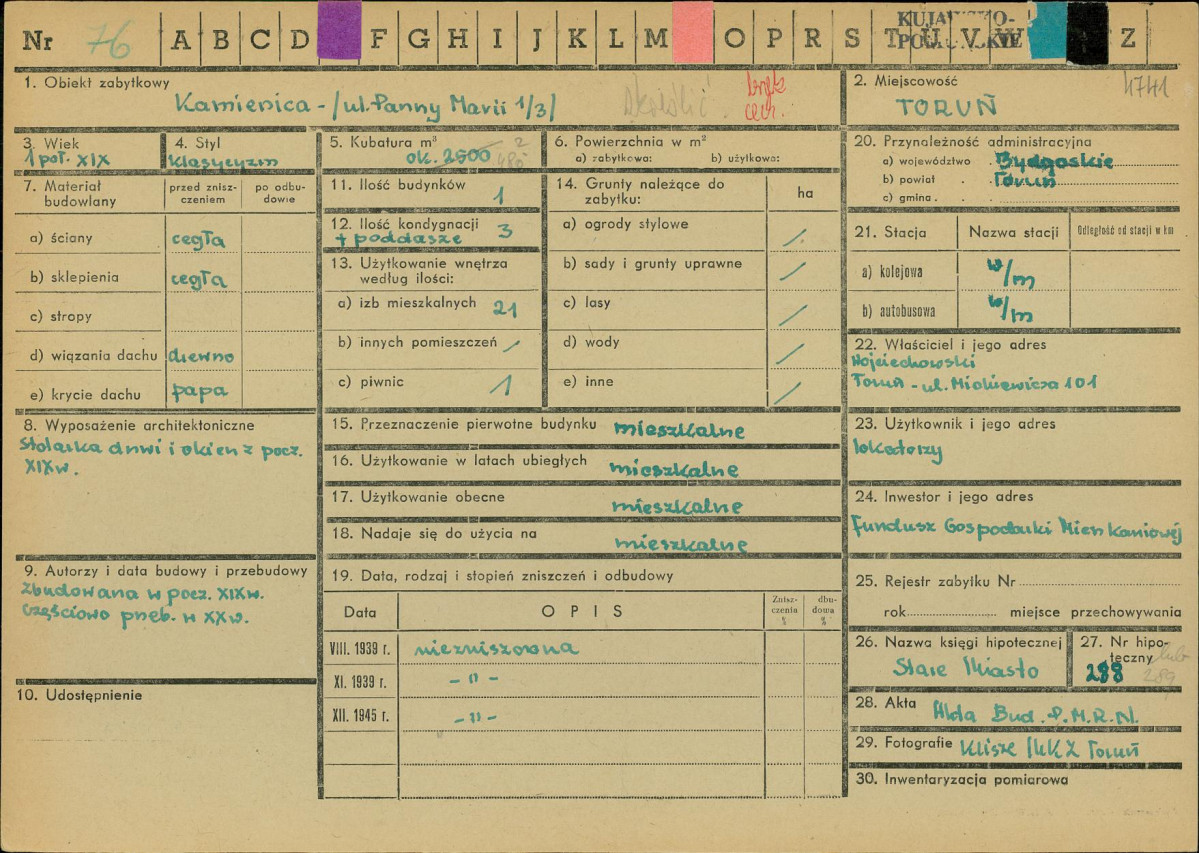 Nr 76 A B C D F G H I J K L M O P R S T U V W Z
KUJAWSKO-
POMORSKIE
1. Obiekt zabytkowy
Kamienica - /ul. Panny Marii 1/3/
2. Miejscowość 4741
TORUŃ
3. Wiek
1 poł. XIX
4. Styl
Klasycyzm
5. Kubatura m³
ok. 2500
6. Powierzchnia w m²
a) zabytkowa: b) użytkowa:
7. Materiał budowlany
przed znisz-
czeniem
po odbu-
dowie
a) ściany cegła
b) sklepienia cegła
c) stropy
d) wiązania dachu drewno
e) krycie dachu papa
8. Wyposażenie architektoniczne
Stolarka drzwi i okien z pocz.
XIX w.
9. Autorzy i data budowy i przebudowy
Zbudowana w pocz. XIX w.
Częściowo przeb. w XX w.
10. Udostępnienie
11. Ilość budynków 1
12. Ilość kondygnacji 3
+ poddasze
13. Użytkowanie wnętrza
według ilości:
a) izb mieszkalnych 21
b) innych pomieszczeń /
c) piwnic 1
14. Grunty należące do
zabytku: ha
a) ogrody stylowe /
b) sady i grunty uprawne /
c) lasy /
d) wody /
e) inne /
15. Przeznaczenie pierwotne budynku mieszkalne
16. Użytkowanie w latach ubiegłych mieszkalne
17. Użytkowanie obecne mieszkalne
18. Nadaje się do użycia na mieszkalne
19. Data, rodzaj i stopień zniszczeń i odbudowy
Data OPIS Znisz-
czenia
%
dbu-
dowa
%
VIII. 1939 r. niezniszczona
XI. 1939 r. - " -
XII. 1945 r. - " -
20. Przynależność administracyjna
a) województwo Bydgoskie
b) powiat Toruń
c) gmina
21. Stacja Nazwa stacji Odległość od stacji w km
a) kolejowa w/m
b) autobusowa w/m
22. Właściciel i jego adres
Wojciechowski
Toruń - ul. Mickiewicza 101
23. Użytkownik i jego adres
lokatorzy
24. Inwestor i jego adres
Fundusz Gospodarki Mieszkaniowej
25. Rejestr zabytku Nr
rok miejsce przechowywania
26. Nazwa księgi hipotecznej
Stare Miasto
27. Nr hipo-
teczny
288 lub
289
28. Akta Akta Bud. P.M.R.N.
29. Fotografie Klisze MKZ Toruń
30. Inwentaryzacja pomiarowa